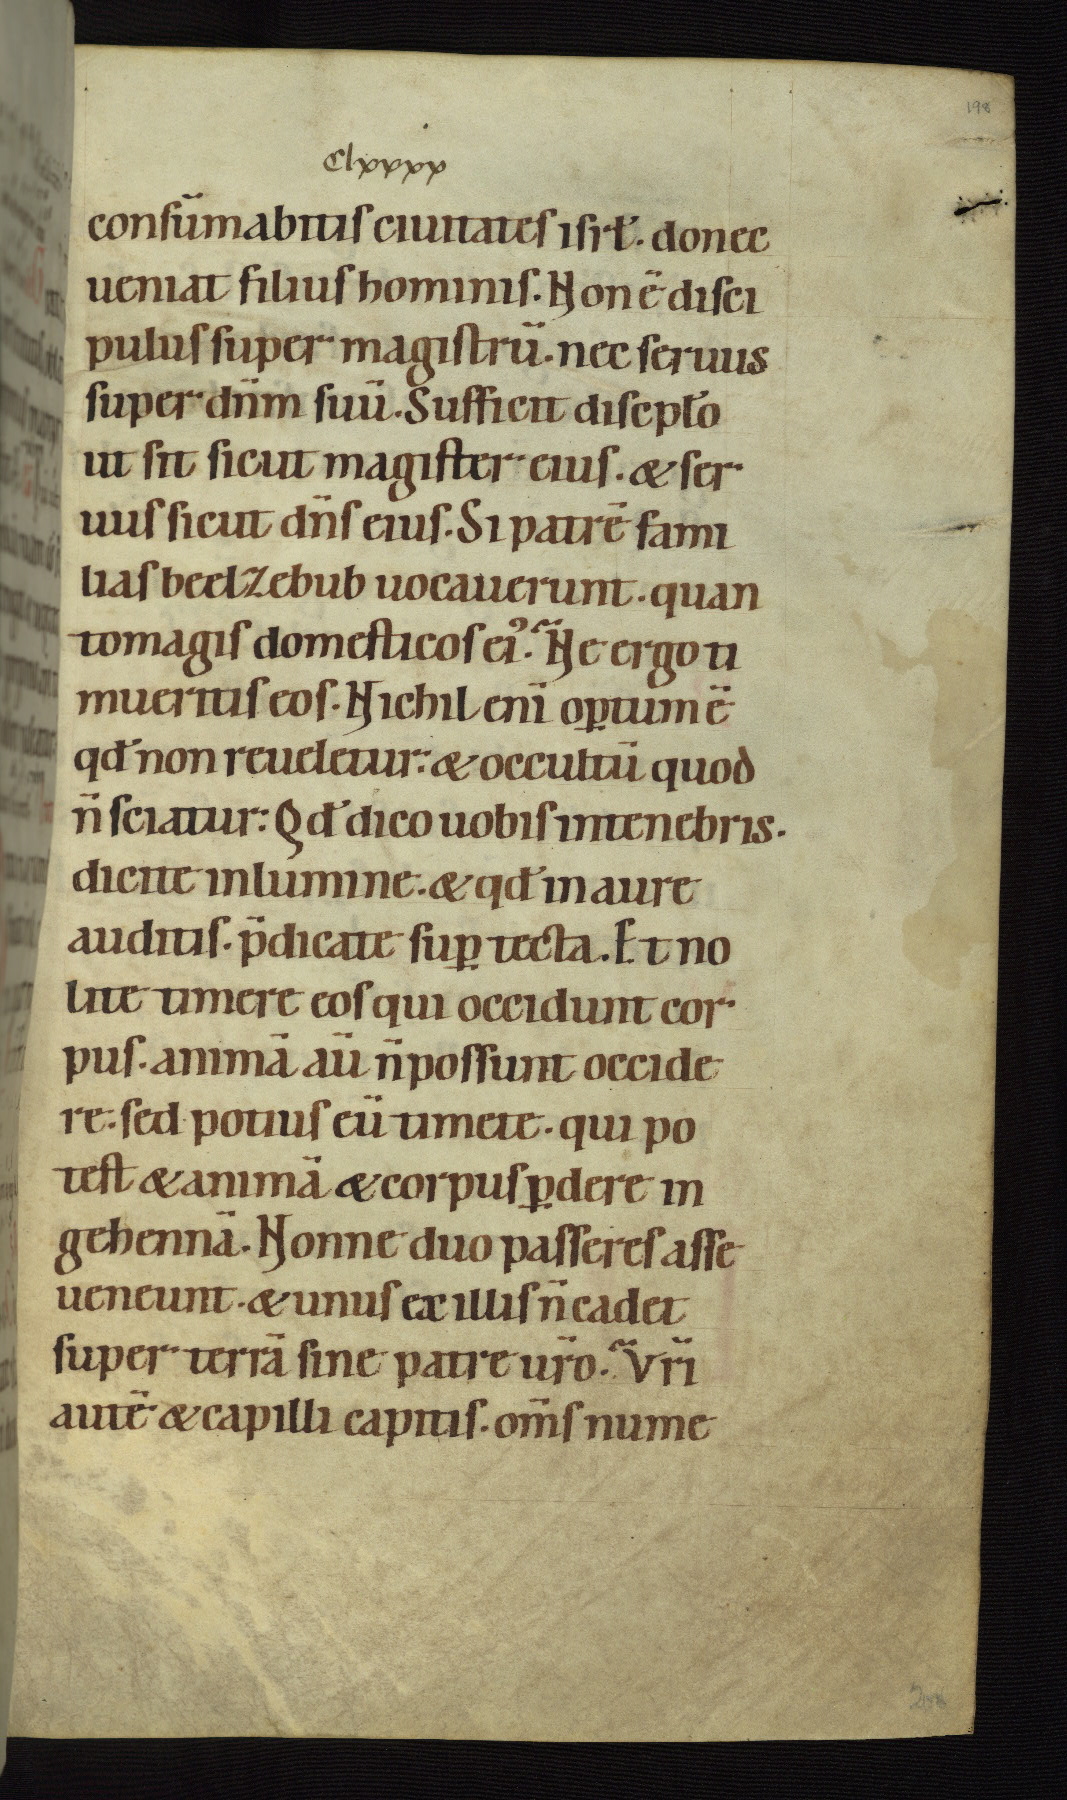 198
Clxxxx
consūmabitis ciuitates isrł. donec
ueniat filius hominis. Non ē disci
pulus super magistrū. nec seruus
super dn̄m suū. Sufficit discipło
ut sit sicut magister eius. & ser
uus sicut dn̄s eius. Si patrē fami
lias beelzebub uocauerunt. quan
to magis domesticos ei⁹. Ne ergo ti
mueritis eos. Nichil enī op̱tum ē
qđ non reueletur: & occultū quod
n̄ sciatur: Qđ dico uobis in tenebris.
dicite in lumine: & qđ in aure
auditis. p̄dicate sup̱ tecta. Et no
lite timere eos qui occidunt cor
pus. animā aū n̄ possunt occide
re: sed potius eū timete. qui po
test & animā & corpus p̱dere in
gehennā. Nonne duo passeres asse
ueneunt. & unus ex illis n̄ cadet
super terrā sine patre ur̄o. Vr̄i
autē & capilli capitis. om̄s nume